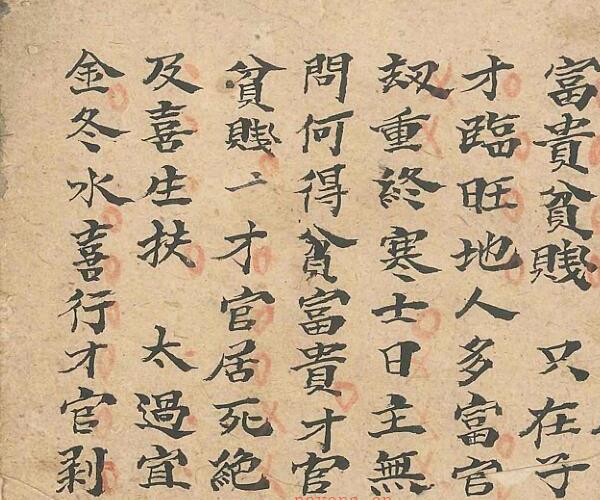 富貴貧賤 只在子
才臨旺地人多富官
刼重終寒士日主無
問何得貧富貴才官
貧賤才官居死絕
及喜生扶 太過宜
金冬水喜行才官剥